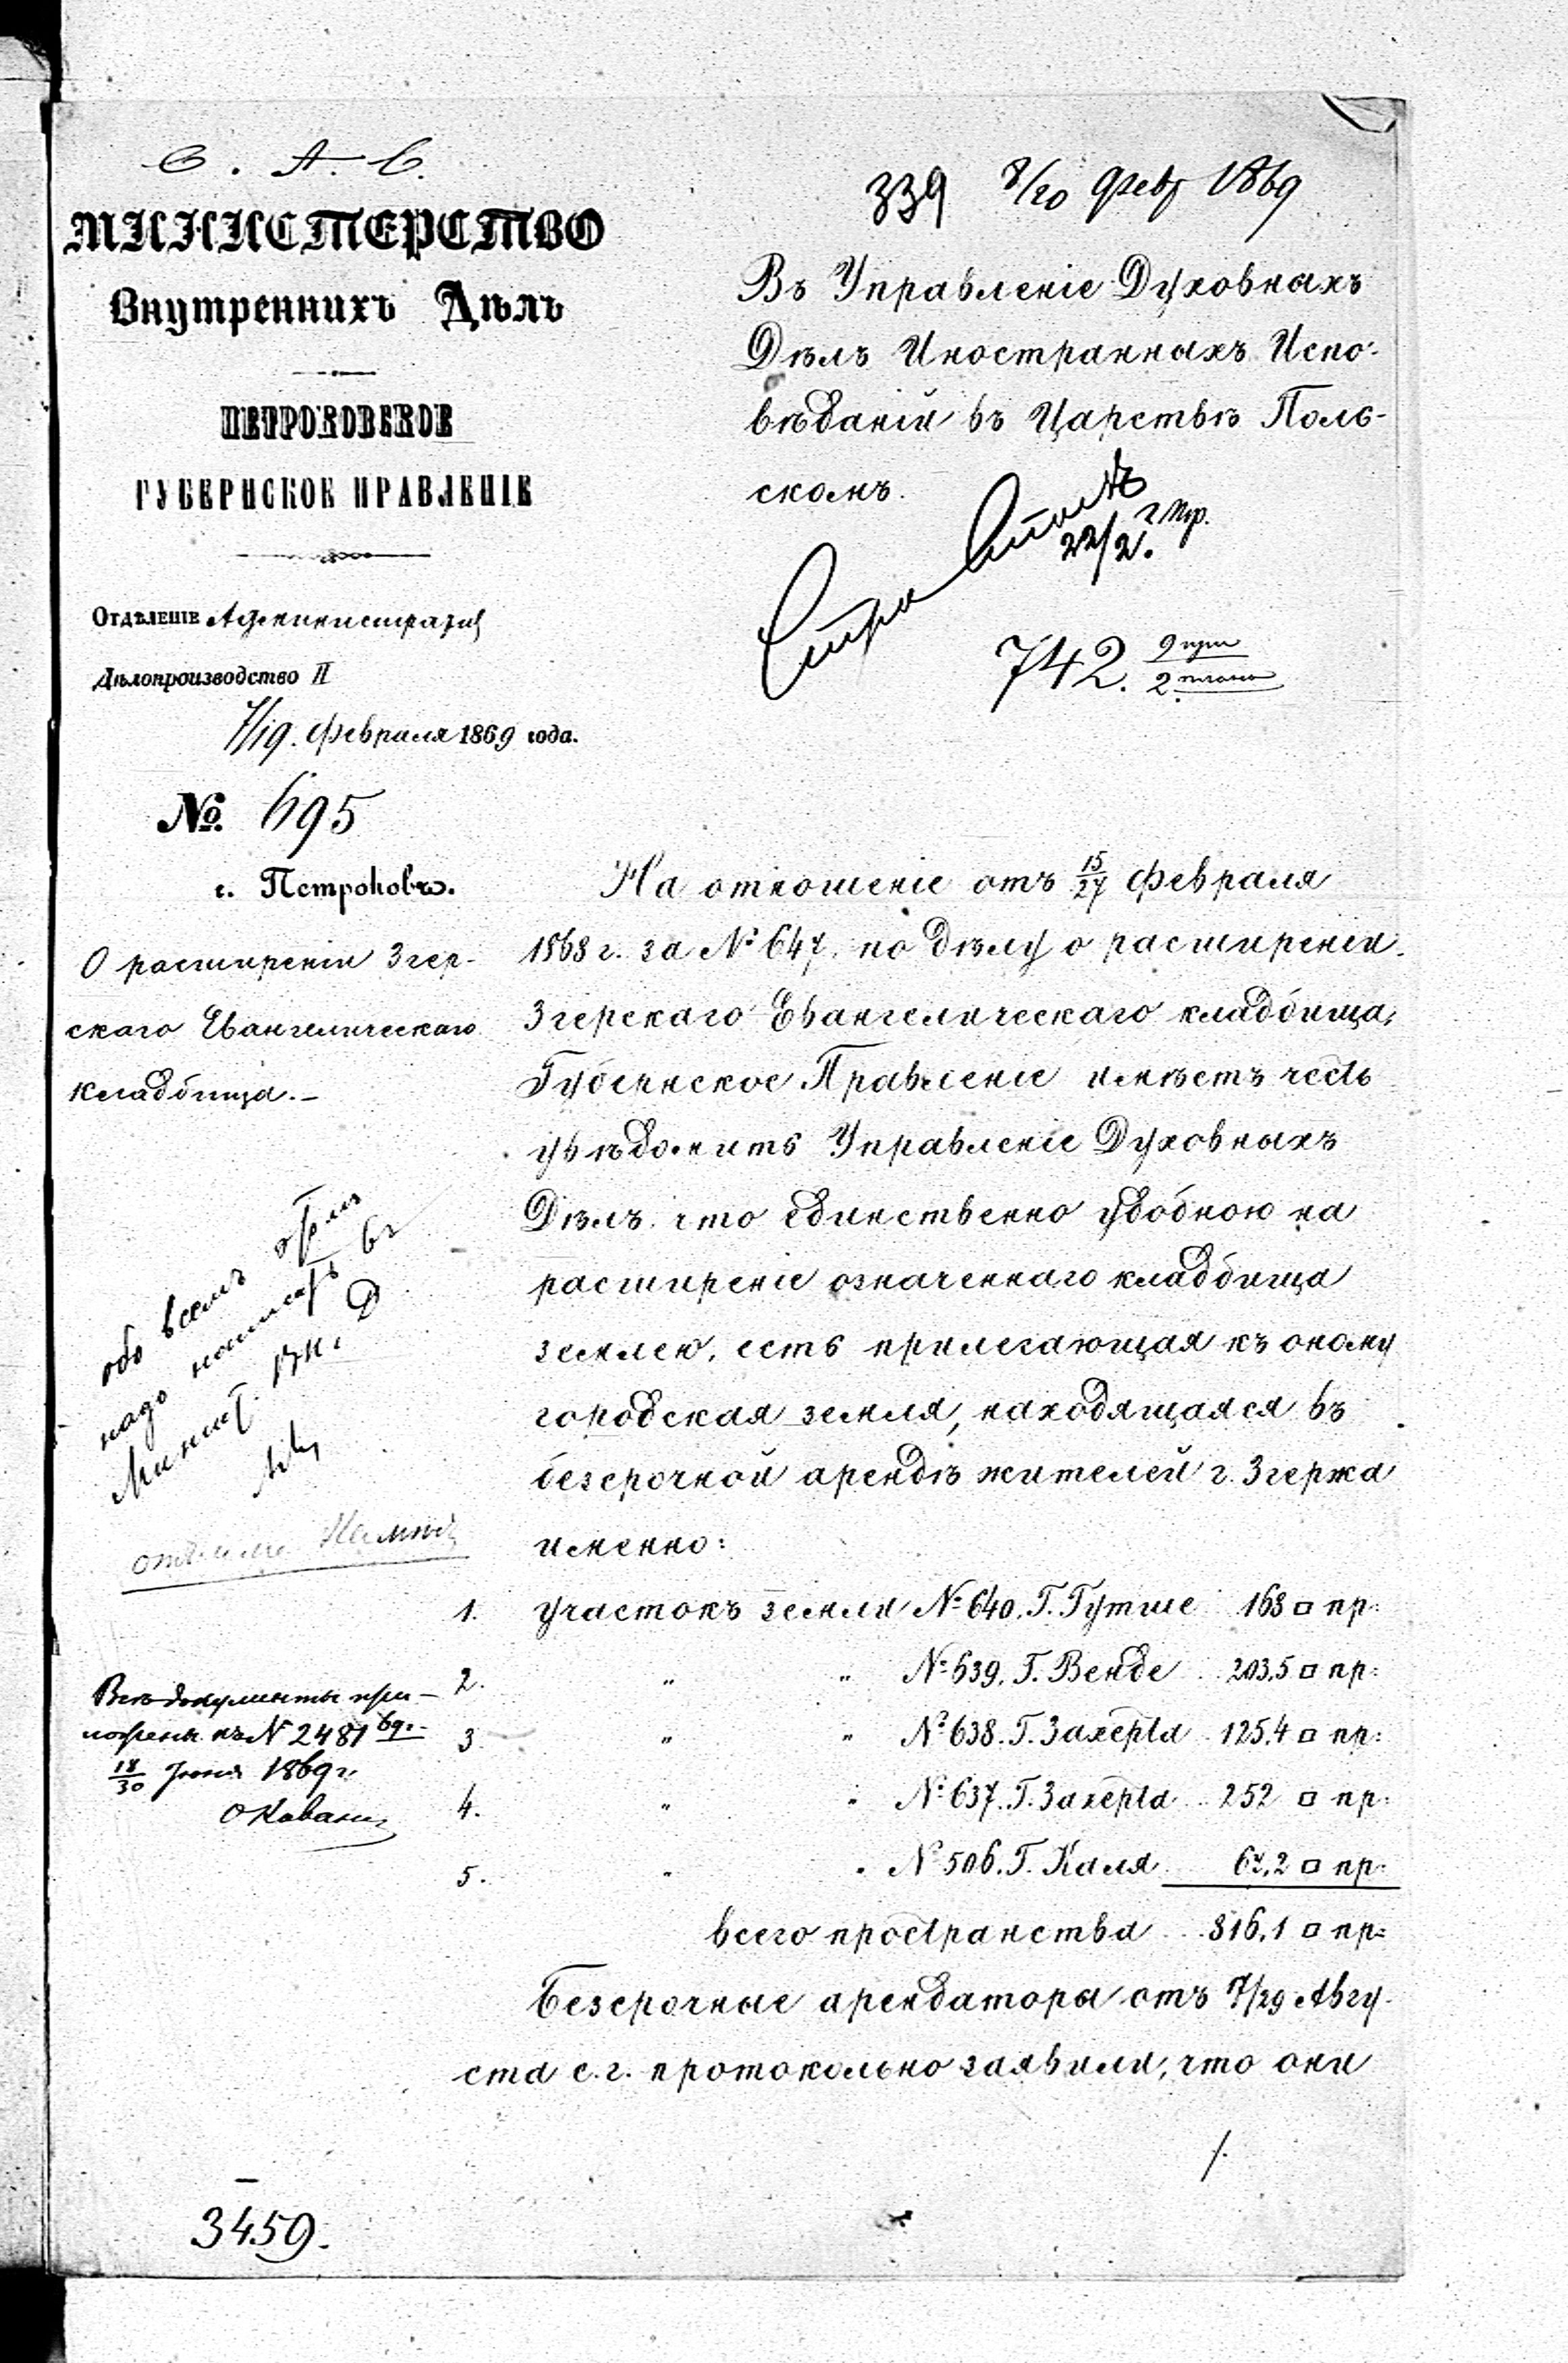 С. А. С.
МИНИСТЕРСТВО
Внутреннихъ Дѣлъ
ПЕТРОКОВСКОЕ
ГУБЕРНСКОЕ ПРАВЛЕНІЕ
Отдѣленіе Администрац
Дѣлопроизводство II
7/19. Февраля 1869 года.
№ 695
г. Петроковъ.
О расширеніи Згер-
скаго Евангелическаго
кладбища.-
339 8/20 Февр 1869
Въ Управленіе Духовныхъ
Дѣлъ Иностранныхъ Испо-
вѣданій въ Царствѣ Поль-
скомъ.
22/2.
742. 9
2
На отношеніе отъ 15/27 Февраля
1868 г. за № 647. по дѣлу о расширеніи
Згерскаго Евангелическаго кладбища,
Губернское Правленіе имѣетъ честь
увѣдомить Управленіе Духовныхъ
Дѣлъ. что единственно удобною на
расширеніе означеннаго кладбища
землею, есть прилегающая къ оному
городская земля, находящаяся въ
безсрочной арендѣ жителей г. Згержа
именно:
1. участокъ земли № 640. Г. Гутше 168 □ пр:
2. „ „ № 639. Г. Венде 203,5 □ пр:
3. „ „ № 638. Г. Захерта 125,4 □ пр:
4. „ „ № 637. Г. Захерта 252 □ пр:
5. „ „ № 506. Г. Каля 67,2 □ пр:
всего пространства 816,1 □ пр:
Безсрочные арендаторы отъ 17/29 Авгу-
ста с. г. протокольно заявили, что они
/.
обо всемъ
надо въ
Минист. Вн. Д
Всѣ документы при-
ложены къ N 2481 69г.
18/30 Іюня 1869 г.
3459.